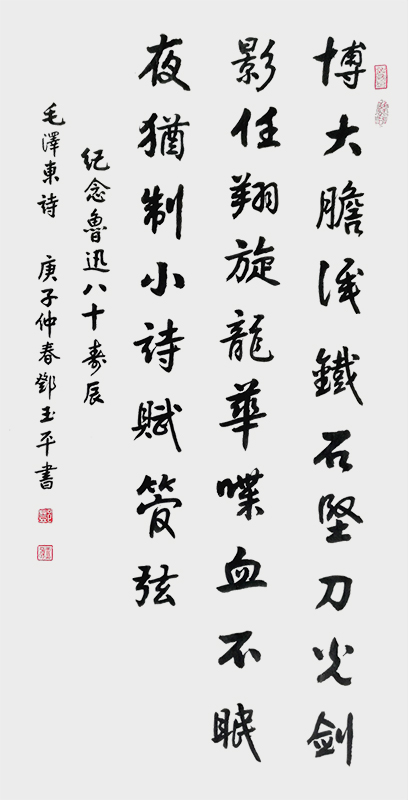 博大膽識鐵石堅刀光劍
影任翔旋龍華喋血不眠
夜猶制小詩賦管弦
紀念魯迅八十壽辰
毛澤東詩 庚子仲春鄧玉平書